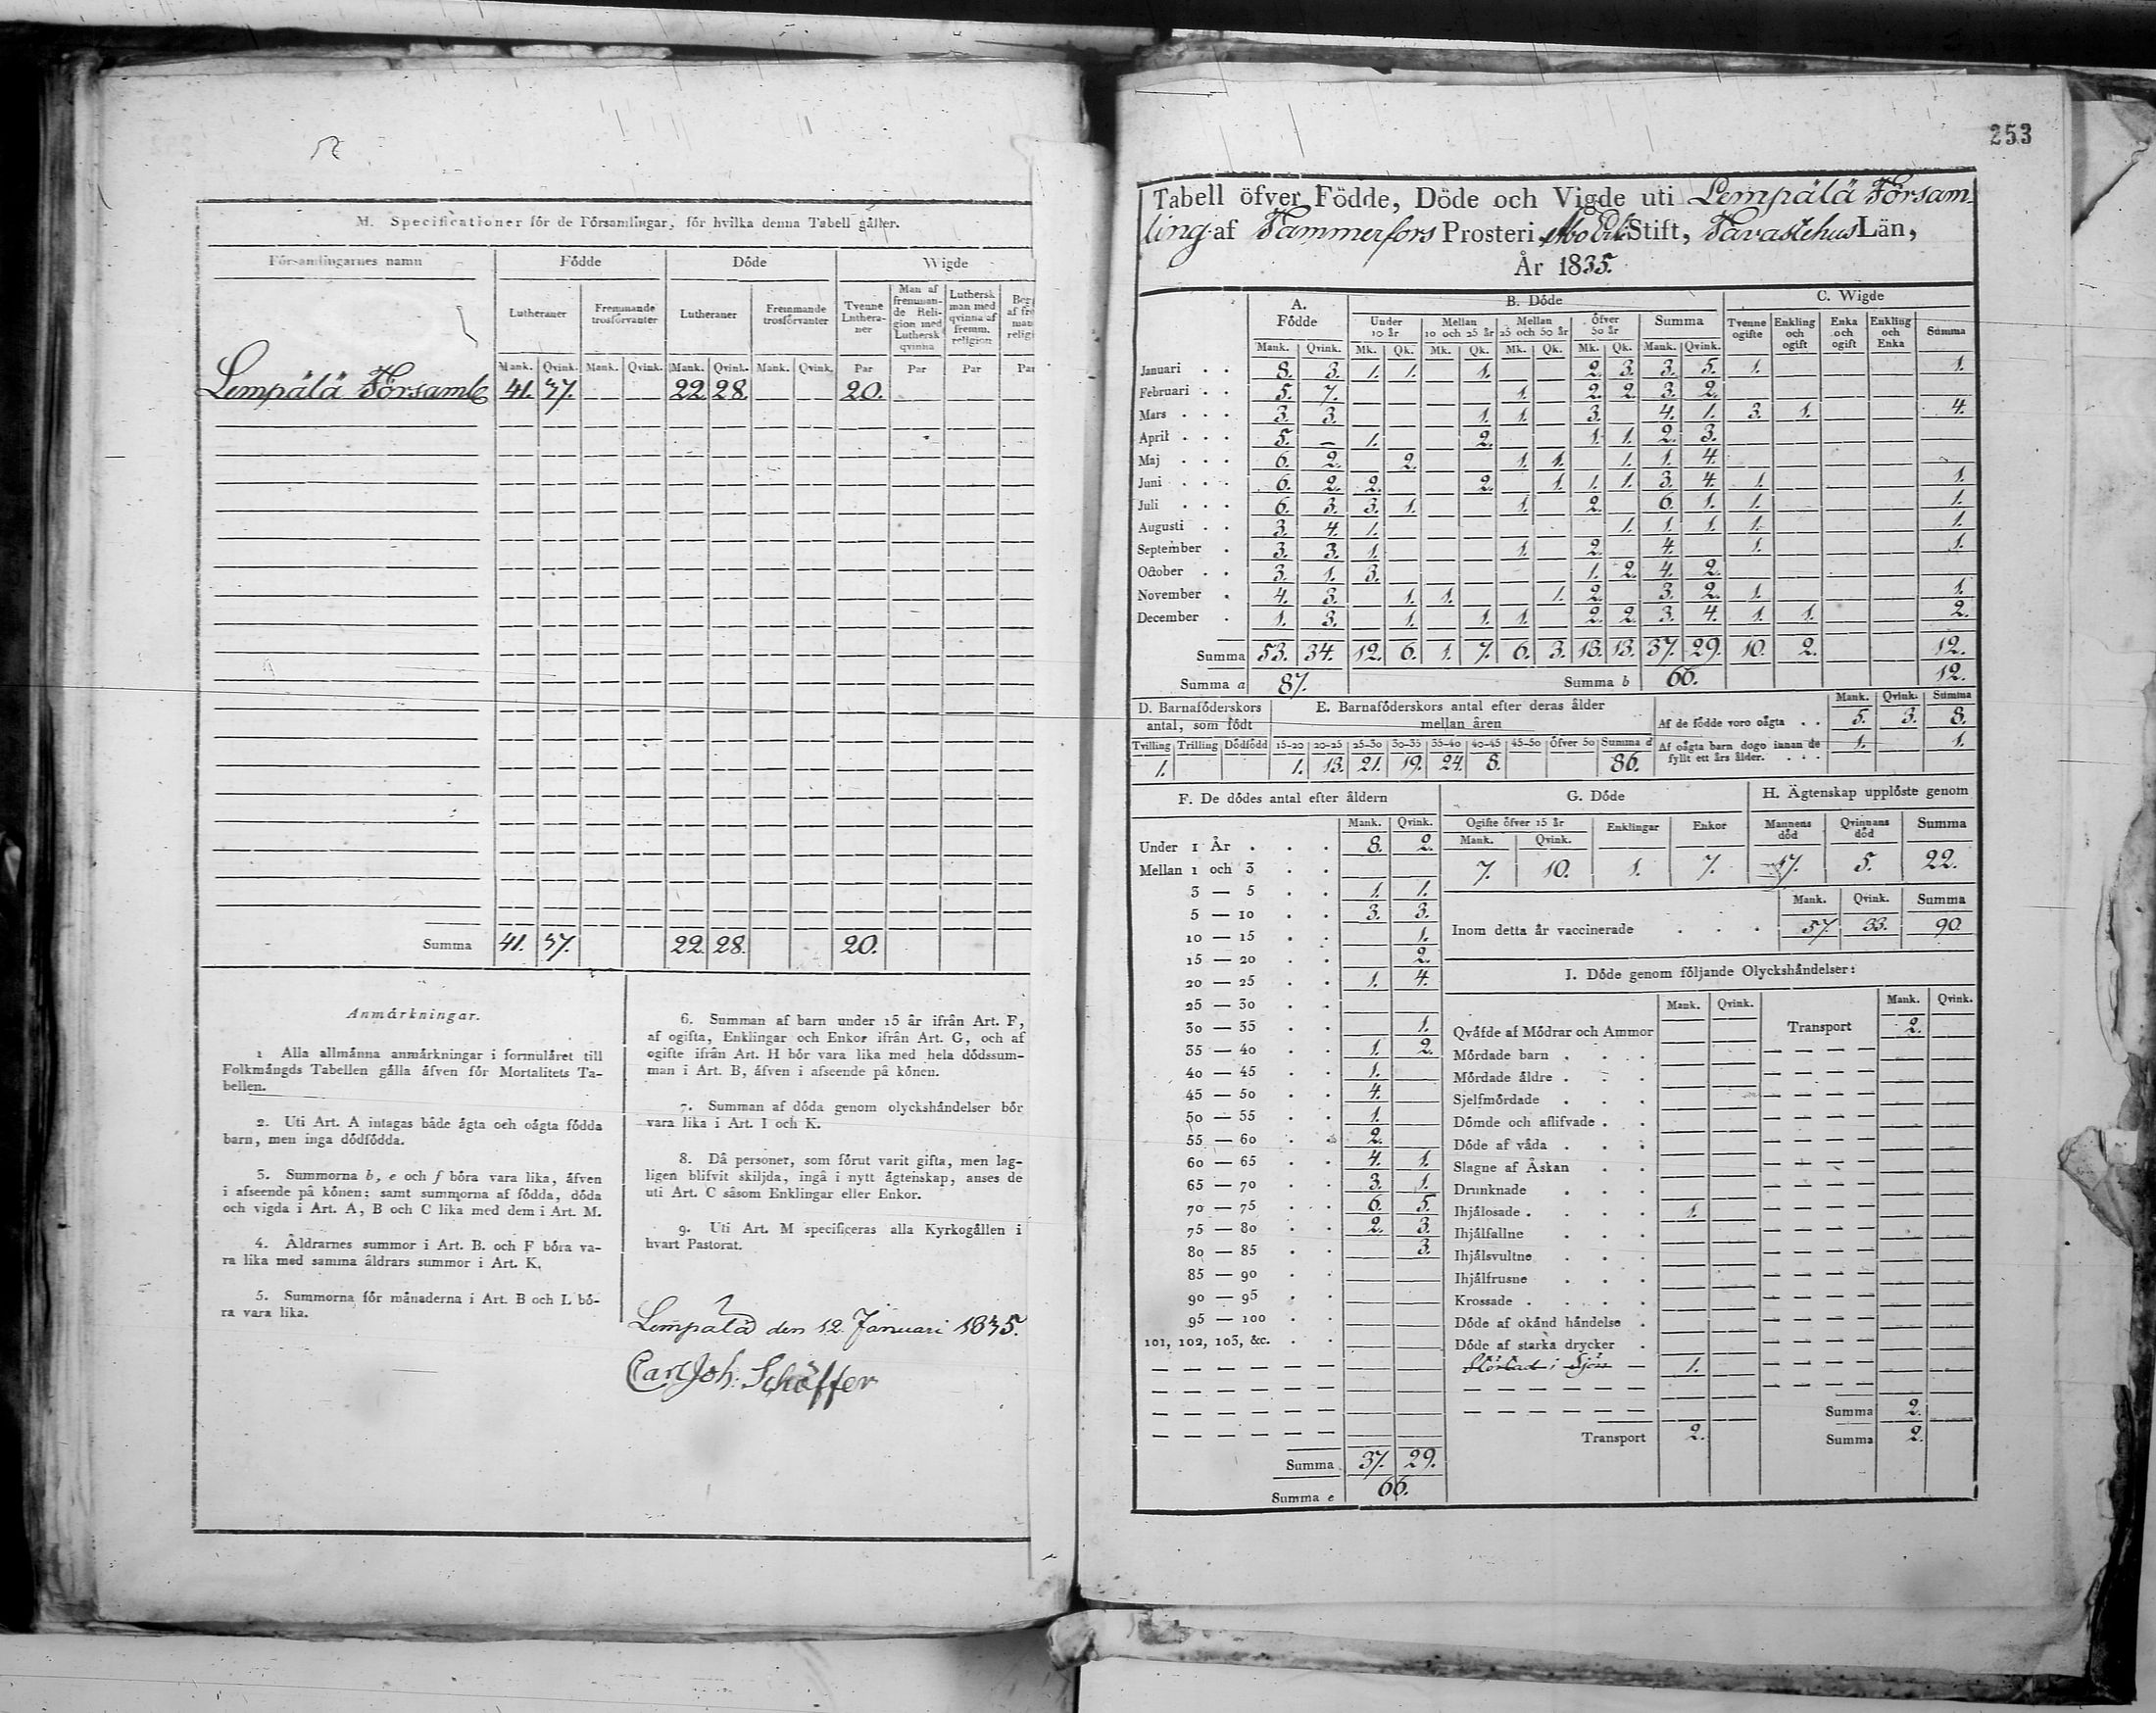 M. Specificationer för de Församlingar, för hvilka denna Tabell gäller.
Församlingarnes namn | Födde | Döde | Wigde
Lutheraner | Fremmande trosförvanter | Lutheraner | Fremmande trosförvanter | Tvenne Lutheraner | Man af fremmande Religion med Luthersk qvinna | Luthersk man med qvinna af fremm. religion
Mank. Qvink. Mank. Qvink. Mank. Qvink. Mank. Qvink. Par Par Par Par
Lempälä Församl 41. 37. — — 22. 28. — — 20.
Summa 41. 37. 22. 28. 20.
Anmärkningar.
1 Alla allmänna anmärkningar i formuläret till
Folkmängds Tabellen gälla äfven för Mortalitets Ta-
bellen.
2. Uti Art. A intagas både ägta och oägta födda
barn, men inga dödfödda.
3. Summorna b, e och f böra vara lika, äfven
i afseende på könen: samt summorna af födda, döda
och vigda i Art. A, B och C lika med dem i Art. M.
4. Åldrarnes summor i Art. B. och F böra va-
ra lika med samma åldrars summor i Art. K.
5. Summorna för månaderna i Art. B och L bö-
ra vara lika.
6. Summan af barn under 15 år ifrån Art. F,
af ogifta, Enklingar och Enkor ifrån Art. G, och af
ogifte ifrån Art. H bör vara lika med hela dödssum-
man i Art. B, äfven i afseende på könen.
7. Summan af döda genom olyckshändelser bör
vara lika i Art. I och K.
8. Då personer, som förut varit gifta, men lag-
ligen blifvit skiljda, ingå i nytt ägtenskap, anses de
uti Art. C såsom Enklingar eller Enkor.
9. Uti Art. M specificeras alla Kyrkogällen i
hvart Pastorat.
Lempälä den 12. Januari 1835.
Carl Joh. Schäffer
253
Tabell öfver Födde, Döde och Vigde uti Lempälä Försam-
ling af Tammerfors Prosteri, Åbo Erk: Stift, Tavastehus Län,
År 1835.
A. Födde | B. Döde | C. Wigde
Under 10 år | Mellan 10 och 25 år | Mellan 25 och 50 år | Öfver 50 år | Summa | Tvenne ogifte | Enkling och ogift | Enka och ogift | Enkling och Enka | Summa
Mank. Qvink. Mk. Qk. Mk. Qk. Mk. Qk. Mk. Qk. Mank. Qvink.
Januari . . 8. 3. 1. 1. 1. 2. 3. 3. 5. 1. 1.
Februari . . 5. 7. 1. 2. 2. 3. 2.
Mars . . . 3. 3. 1. 1. 3. 4. 1. 3. 1. 4.
April . . . 5. – 1. 2. 1. 1. 2. 3.
Maj . . . 6. 2. 2. 1. 1. 1. 1. 4.
Juni . . . 6. 2. 2. 2. 1. 1. 1. 3. 4. 1. 1.
Juli . . . 6. 3. 3. 1. 1. 2. 6. 1. 1. 1.
Augusti . . 3. 4. 1. 1. 1. 1. 1. 1.
September . 3. 3. 1. 1. 2. 4. 1. 1.
October . . 3. 1. 3. 1. 2. 4. 2.
November . 4. 3. 1. 1. 1. 2. 3. 2. 1. 1.
December . 1. 3. 1. 1. 1. 2. 2. 3. 4. 1. 1. 2.
Summa 53. 34. 12. 6. 1. 7. 6. 3. 18. 13. 37. 29. 10. 2. 12.
Summa a 87. Summa b 66. 12.
D. Barnaföderskors antal, som födt
Tvilling | Trilling | Dödfödd
1.
E. Barnaföderskors antal efter deras ålder mellan åren
15-20 20-25 25-30 30-35 35-40 40-45 45-50 Öfver 50 Summa d
1. 13. 21. 19. 24. 8. 86.
Mank. Qvink. Summa
Af de födde voro oägta . . 5. 3. 8.
Af oägta barn dogo innan de
fyllt ett års ålder. . . . 1. 1.
F. De dödes antal efter åldern
Mank. Qvink.
Under 1 År . . . 8. 2.
Mellan 1 och 3 . .
3 — 5 . . 1. 1.
5 — 10 . . 3. 3.
10 — 15 . . 1.
15 — 20 . . 2.
20 — 25 . . 1. 4.
25 — 30 . .
30 — 35 . . 1.
35 — 40 . . 1. 2.
40 — 45 . . 1.
45 — 50 . . 4.
50 — 55 . . 1.
55 — 60 . . 2.
60 — 65 . . 4. 1.
65 — 70 . . 3. 1.
70 — 75 . . 6. 5.
75 — 80 . . 2. 3.
80 — 85 . . 3.
85 — 90 . .
90 — 95 . .
95 — 100 . .
101, 102, 103, &c. . .
Summa 37. 29.
Summa e 66.
G. Döde
Ogifte öfver 15 år | Enklingar | Enkor
Mank. Qvink.
7. 10. 1. 7.
H. Ägtenskap upplöste genom
Mannens död | Qvinnans död | Summa
17. 5. 22.
Mank. Qvink. Summa
Inom detta år vaccinerade . . . 57. 33. 90.
I. Döde genom följande Olyckshändelser:
Mank. Qvink. Mank. Qvink.
Qväfde af Mödrar och Ammor
Mördade barn . . .
Mördade äldre . . .
Sjelfmördade . . .
Dömde och aflifvade . .
Döde af våda . . .
Slagne af Åskan . .
Drunknade . . .
Ihjälosade . . . . 1.
Ihjälfallne . . .
Ihjälsvultne . . .
Ihjälfrusne . . .
Krossade . . . .
Döde af okänd händelse .
Döde af starka drycker .
i Sjön — 1.
Transport 2.
Transport 2.
Summa 2.
Summa 2.